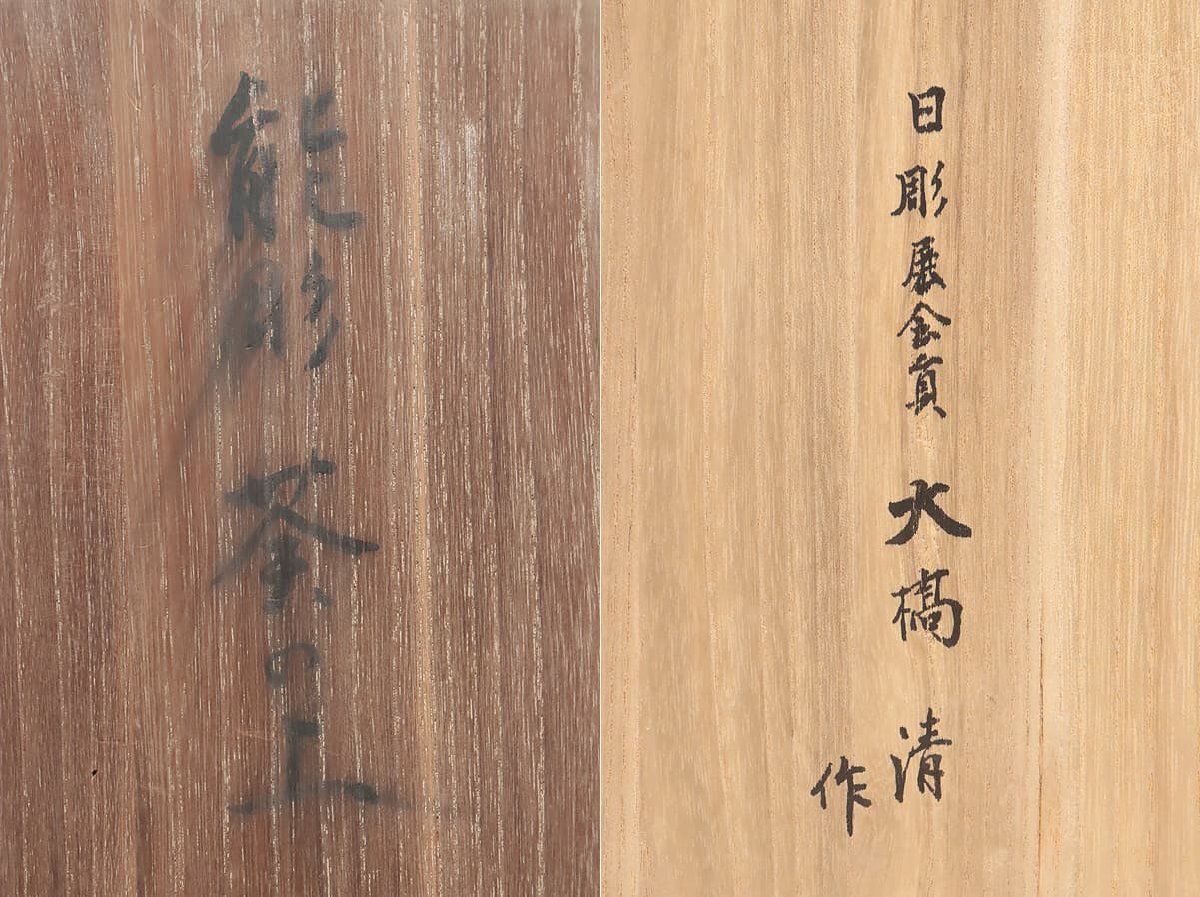 能彫 葵の上
日彫展会員 大橋 清
作